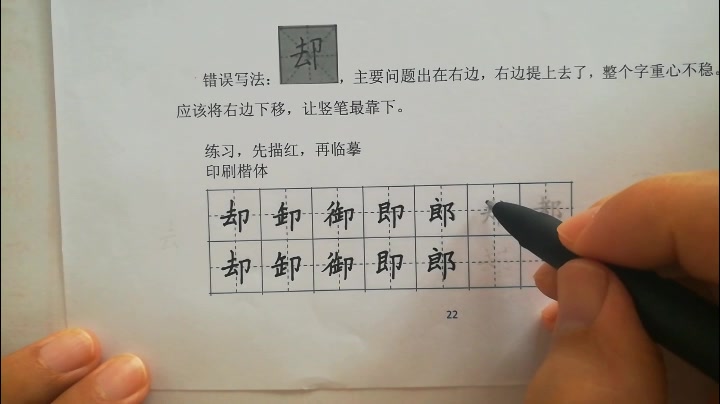 错误写法：却，主要问题出在右边，右边提上去了，整个字重心不稳。
应该将右边下移，让竖笔最靠下。
练习，先描红，再临摹
印刷楷体
却 卸 御 即 郎
却 卸 御 即 郎
22